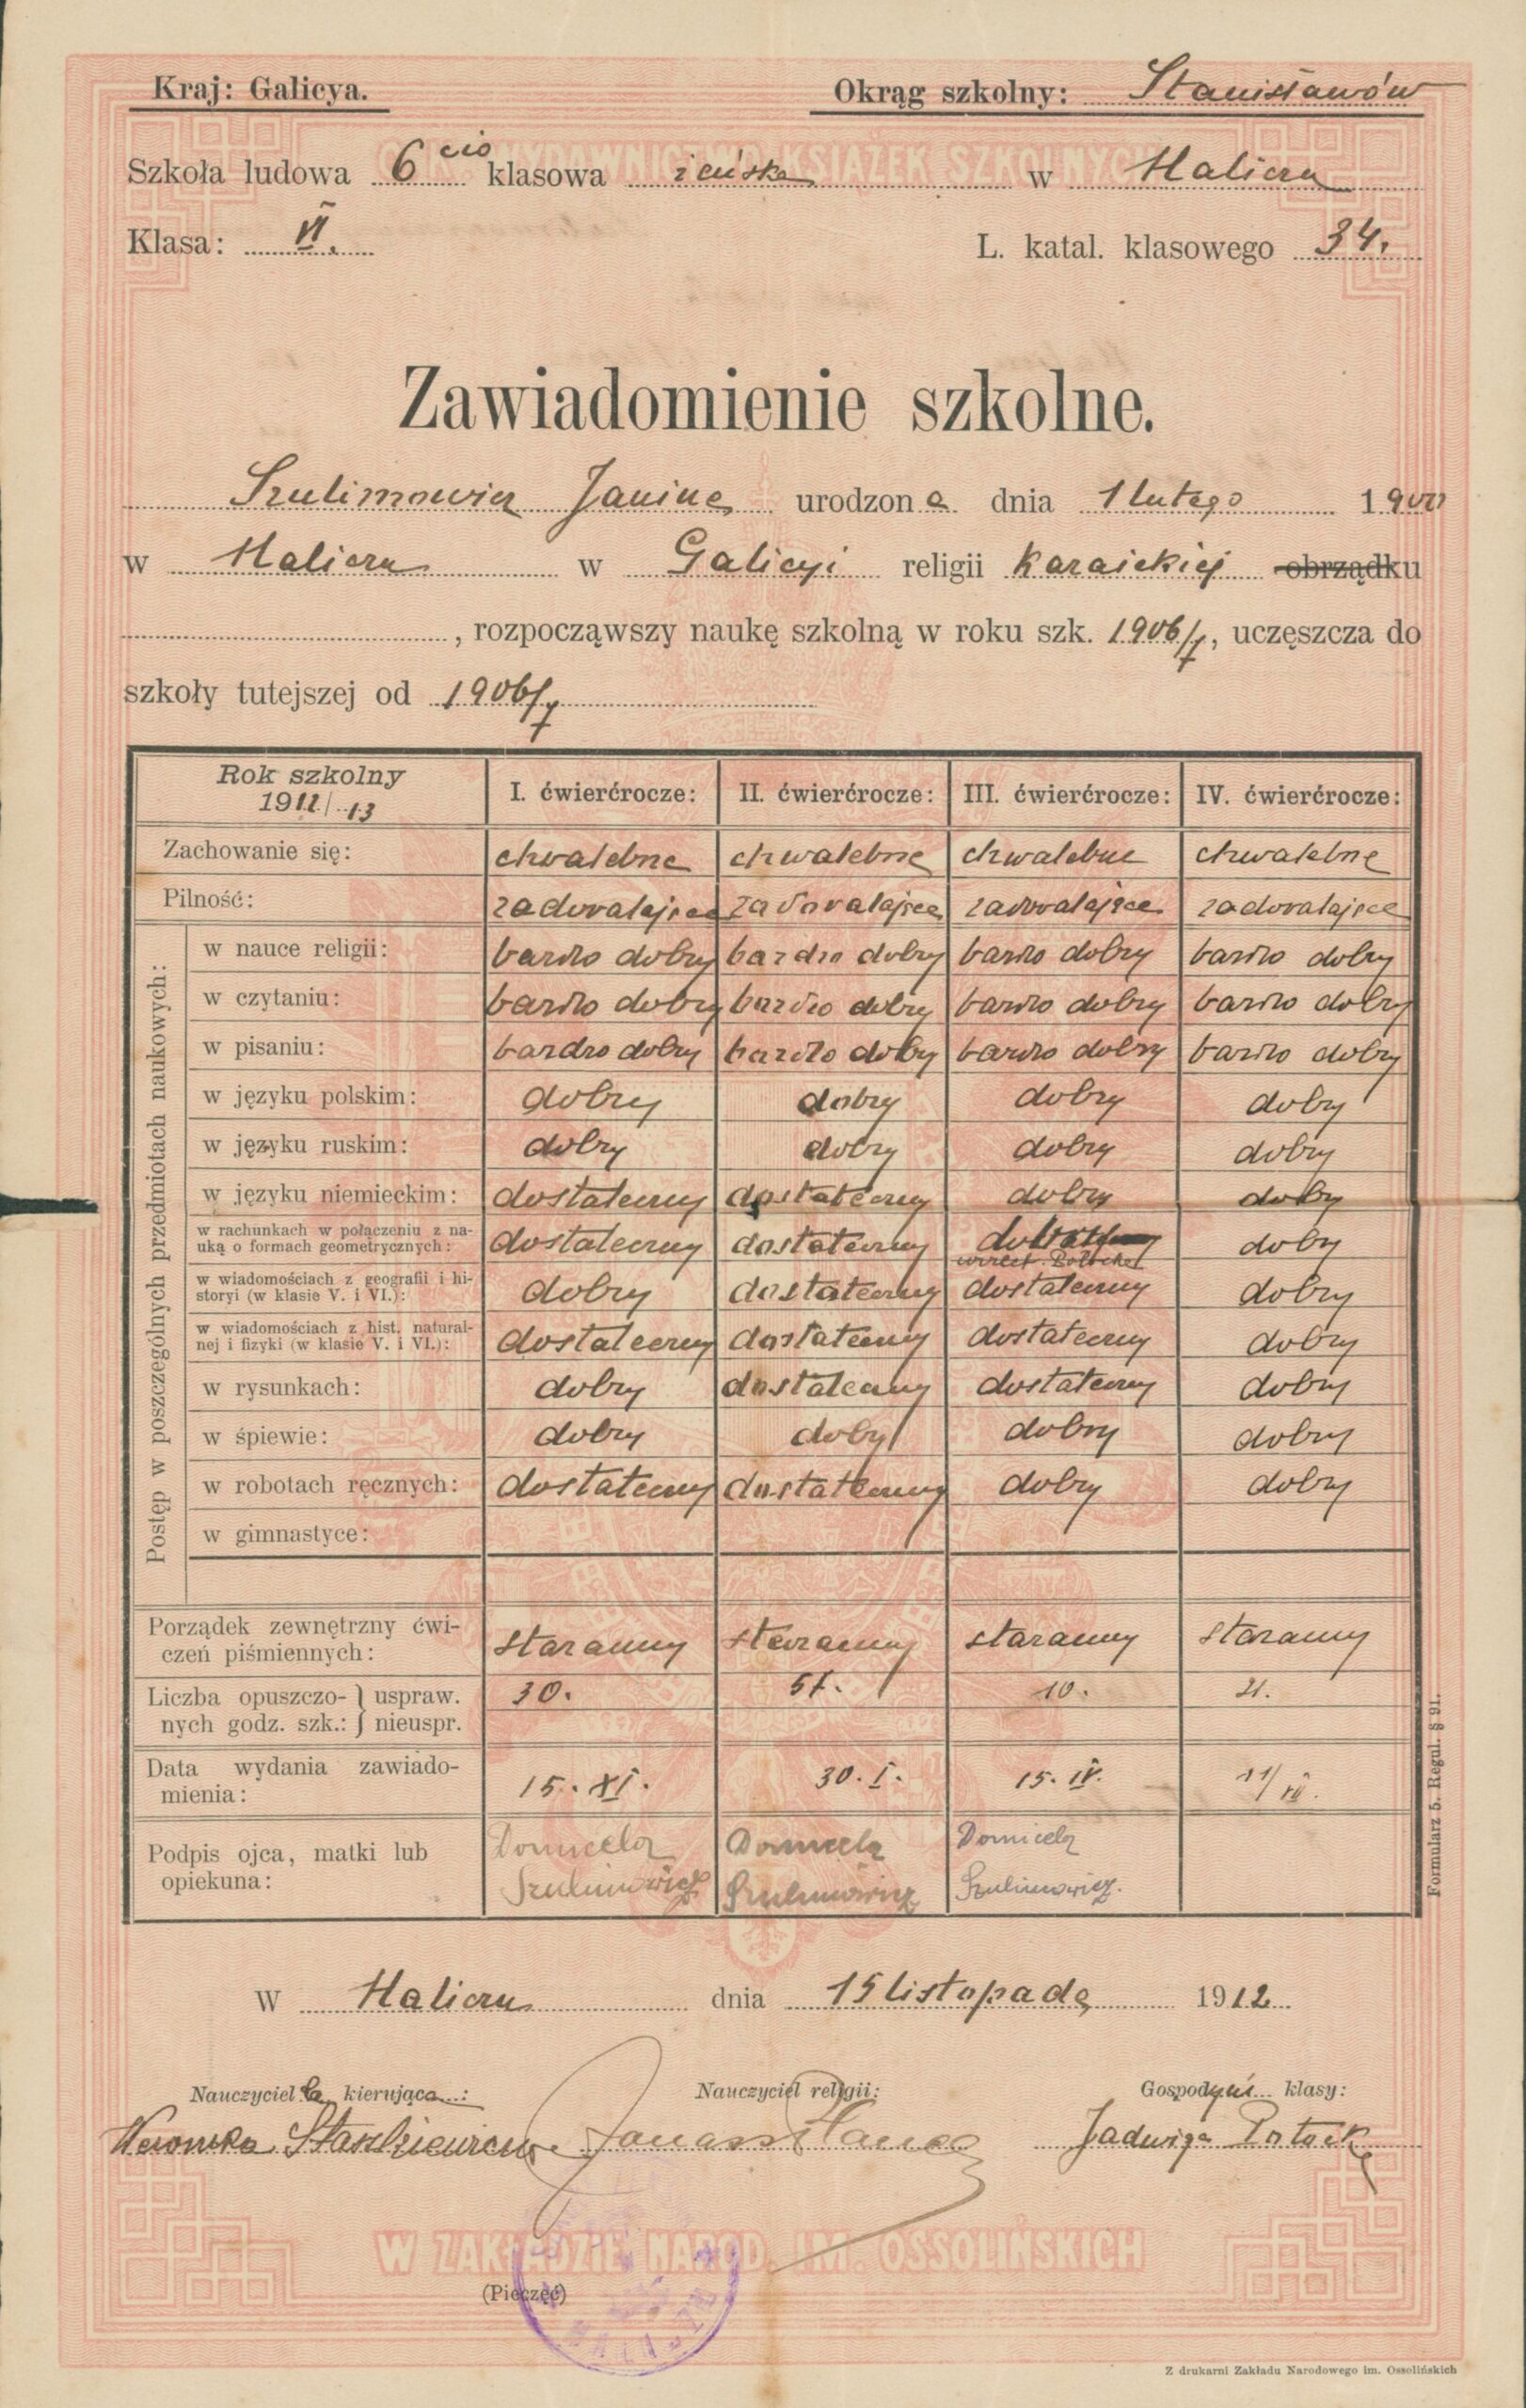 Kraj: Galicya.
Okrąg szkolny: Stanisławów
Szkoła ludowa 6cio klasowa żeńska w Haliczu
Klasa: VI.
L. katal. klasowego 34.
Zawiadomienie szkolne.
Szulimowicz Janina urodzona dnia 1 lutego 1900
w Haliczu w Galicyi religii karaickiej obrządku
, rozpocząwszy naukę szkolną w roku szk. 1906/7, uczęszcza do
szkoły tutejszej od 1906/7
Rok szkolny 1912/13 I. ćwierćrocze: II. ćwierćrocze: III. ćwierćrocze: IV. ćwierćrocze:
Zachowanie się: chwalebne chwalebne chwalebne chwalebne
Pilność: zadowalające zadowalające zadowalające zadowalające
Postęp w poszczególnych przedmiotach naukowych:
w nauce religii: bardzo dobry bardzo dobry bardzo dobry bardzo dobry
w czytaniu: bardzo dobry bardzo dobry bardzo dobry bardzo dobry
w pisaniu: bardzo dobry bardzo dobry bardzo dobry bardzo dobry
w języku polskim: dobry dobry dobry dobry
w języku ruskim: dobry dobry dobry dobry
w języku niemieckim: dostateczny dostateczny dobry dobry
w rachunkach w połączeniu z na-
uką o formach geometrycznych: dostateczny dostateczny dobry
w wiadomościach z geografii i hi-
storyi (w klasie V. i VI.): dobry dostateczny dostateczny dobry
w wiadomościach z hist. natural-
nej i fizyki (w klasie V. i VI.): dostateczny dostateczny dostateczny dobry
w rysunkach: dobry dostateczny dostateczny dobry
w śpiewie: dobry dobry dobry dobry
w robotach ręcznych: dostateczny dostateczny dobry dobry
w gimnastyce:
Porządek zewnętrzny ćwi-
czeń piśmiennych: staranny staranny staranny staranny
Liczba opuszczo- uspraw. 30. 51. 10. 21.
nych godz. szk.: nieuspr.
Data wydania zawiado-
mienia: 15. XI. 30. I. 15. IV. 11/VII.
Podpis ojca, matki lub Domicela Domicela Domicela
opiekuna: Szulimowicz Szulimowicz Szulimowicz.
Formularz 5. Regul. § 91.
W Haliczu dnia 15 listopada 1912
Nauczycielka kierująca: Nauczyciel religii: Gospodyni klasy:
Weronika Jadwiga Potocka
W ZAKŁADZIE NAROD. IM. OSSOLIŃSKICH
(Pieczęć)
Z drukarni Zakładu Narodowego im. Ossolińskich